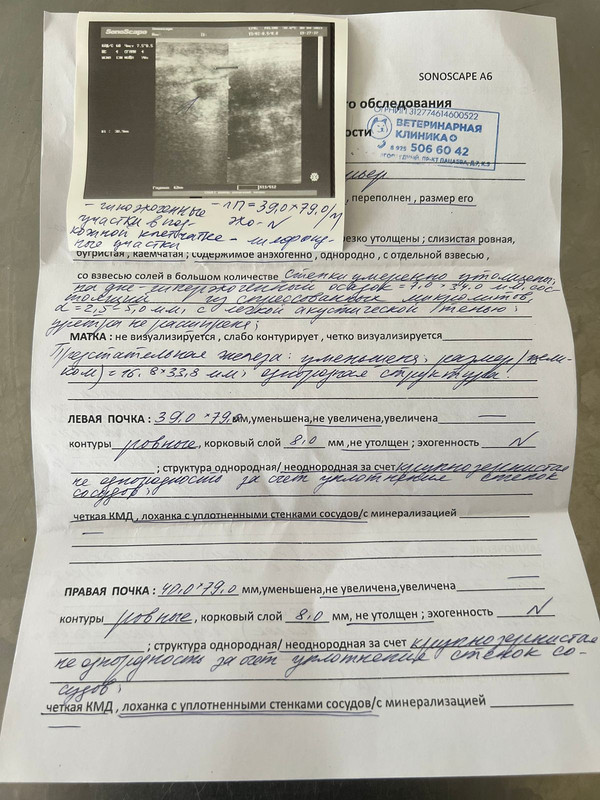 SonoScape
SONOSCAPE A6
го обследования
ОГРНИП 312774614600522
ВЕТЕРИНАРНАЯ
КЛИНИКА
8 925 506 60 42
ности
ьер
- гипоэхогенные - ЛП = 39,0 × 79,0/м
участки в под- эхо - N
кожной клетчатке -
ные участки
, переполнен , размер его
резко утолщены ; слизистая ровная,
бугристая , каемчатая ; содержимое анэхогенно , однородно , с отдельной взвесью ,
со взвесью солей в большом количестве Стенки умеренно утолщены,
на дне - гиперэхогенный осадок = 7,0 × 34,0 мм, сос-
тоящий из спрессованных микролитов,
d = 2,5 - 5,0 мм, с легкой акустической тенью;
уретра не расширена;
МАТКА : не визуализируется , слабо контурирует , четко визуализируется
Предстательная железа: уменьшена, размер/
= 16,8 × 33,8 мм, однородная структура.
ЛЕВАЯ ПОЧКА : 39,0 × 79,0 мм,уменьшена,не увеличена,увеличена —
контуры ровные, корковый слой 8,0 мм ,не утолщен ; эхогенность N
; структура однородная/ неоднородная за счет крупнозернистая
неоднородность за счет уплотнения стенок
сосудов;
четкая КМД , лоханка с уплотненными стенками сосудов/с минерализацией
—
ПРАВАЯ ПОЧКА : 40,0 × 79,0 мм,уменьшена,не увеличена,увеличена —
контуры ровные , корковый слой 8,0 мм, не утолщен ; эхогенность N
; структура однородная/ неоднородная за счет крупнозернистая
неоднородность за счет уплотнения стенок со-
судов;
четкая КМД , лоханка с уплотненными стенками сосудов/с минерализацией